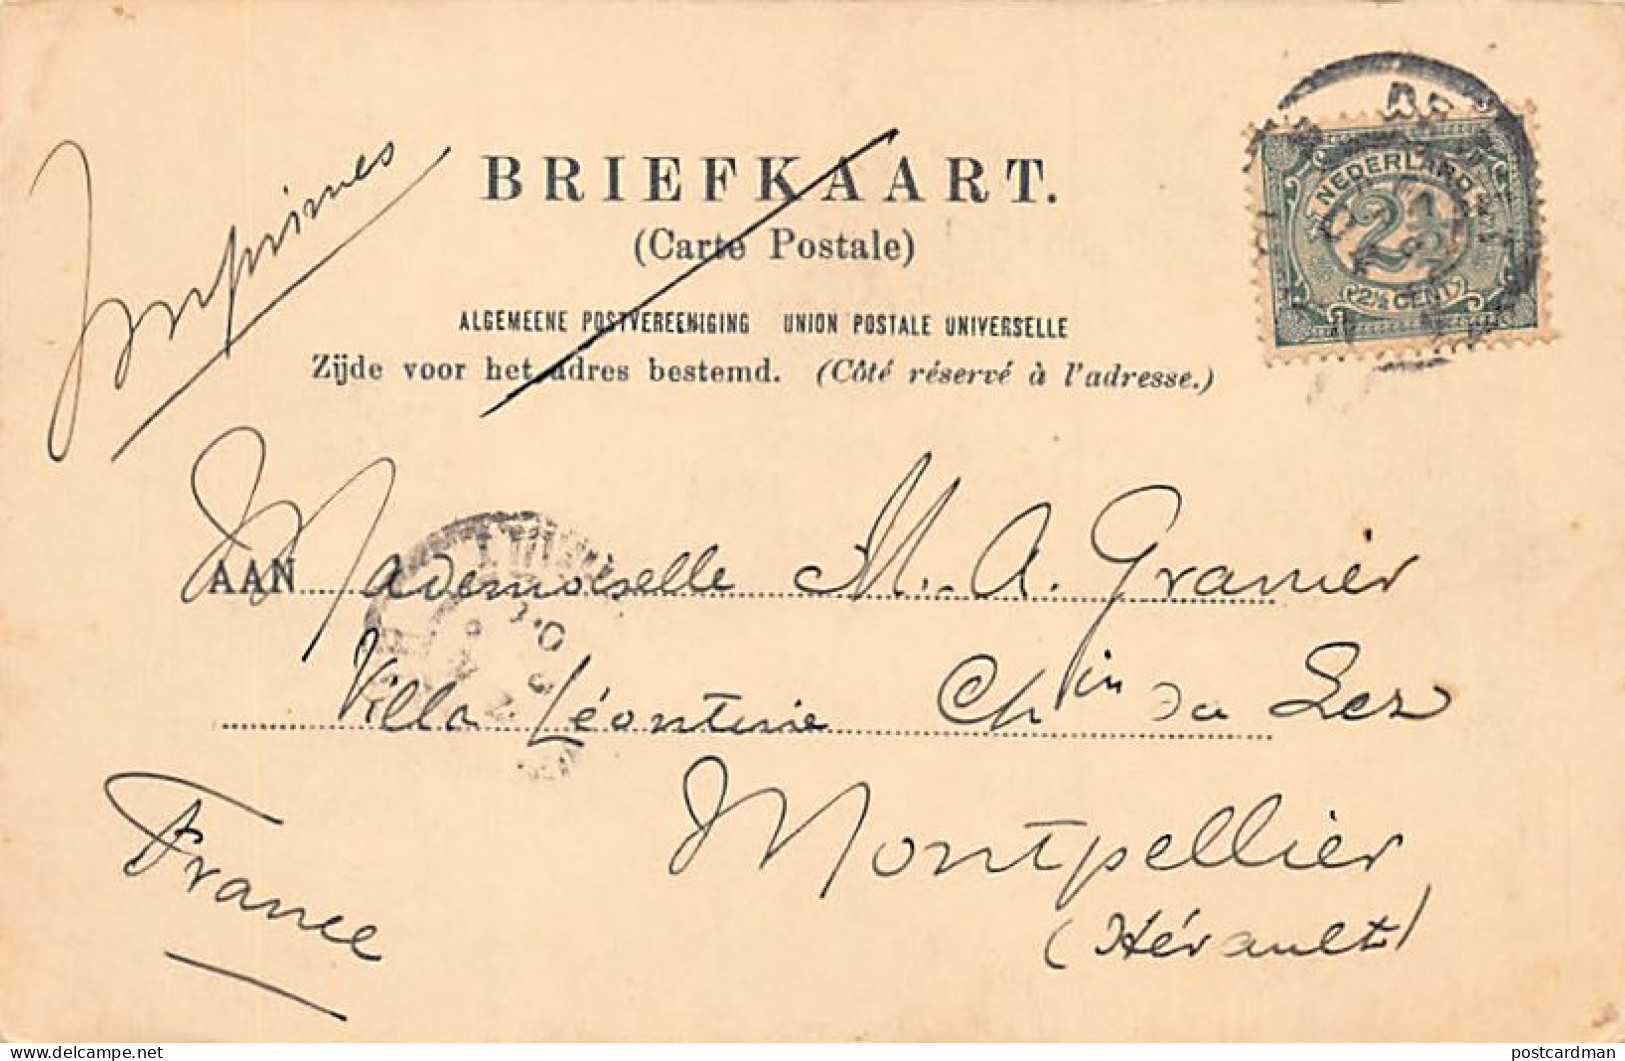 Imprimés
BRIEFKAART.
(Carte Postale)
ALGEMEENE POSTVEREENIGING UNION POSTALE UNIVERSELLE
Zijde voor het adres bestemd. (Côté réservé à l'adresse.)
NEDERLAND
2½
2½ CENT
AAN Mademoiselle M.-A. Granier
Villa Léontine Chin du Lez
Montpellier
(Hérault)
France
delcampe.net
postcardman